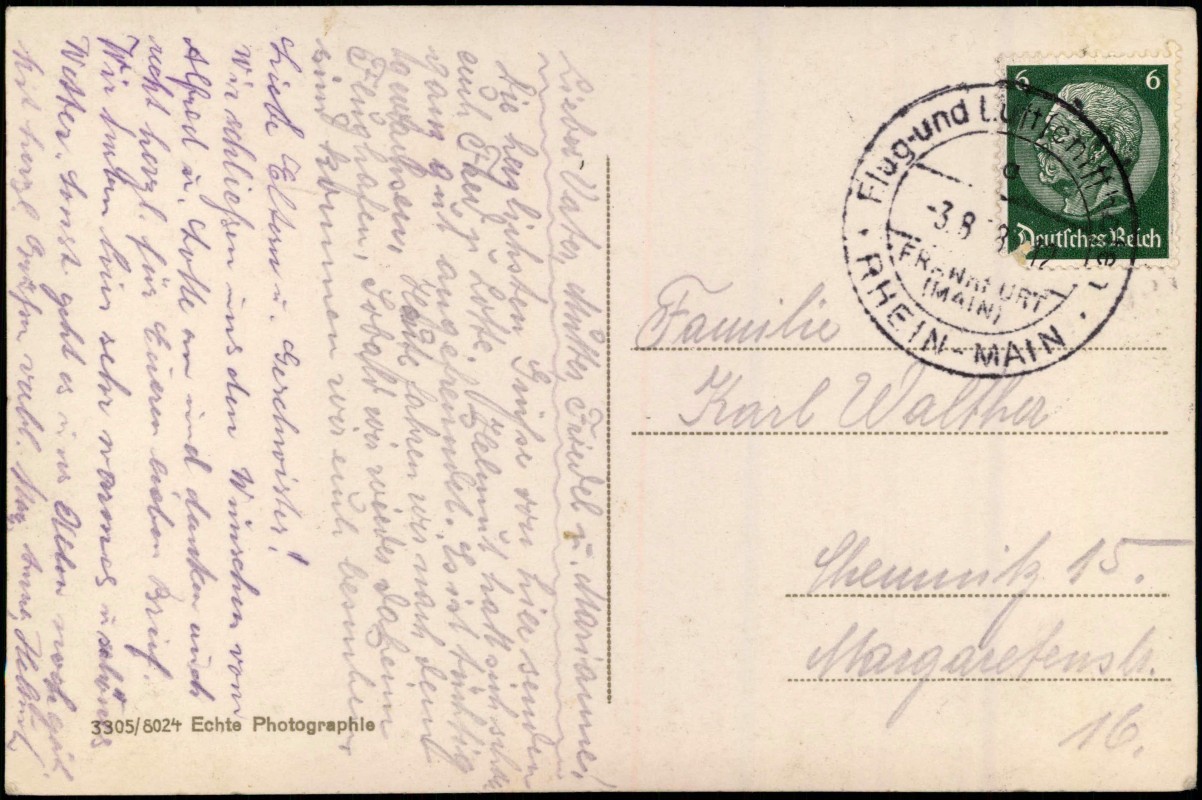 Lieber Vater, Mutter, Friedel u. Marianne!
die herzlichsten Grüße von hier senden
euch Fred u. Lotte. Helmut hat sich schon
ganz gut angefreundet. Es ist tüchtig
gewachsen. Heute fahren wir nach dem
Flughafen, Sobald wir wieder daheim
sind kommen wir euch besuchen.
Liebe Eltern u. Geschwister!
Wir schließen uns den Wünschen von
Alfred u. Lotte an und danken auch
recht herzl. für Eueren lieben Brief.
Wir haben hier sehr warmes u. schönes
Wetter. Sonst geht es uns Allen noch gut
Mit herzl Grüßen verbl.
3305/8024 Echte Photographie
6 6
Deutsches Reich
Flug-und Luftschiffhafen
a
-3.8
FRANKFURT
(MAIN)
RHEIN-MAIN
Familie
Karl Walther
Chemnitz 15.
Margaretenstr.
16.